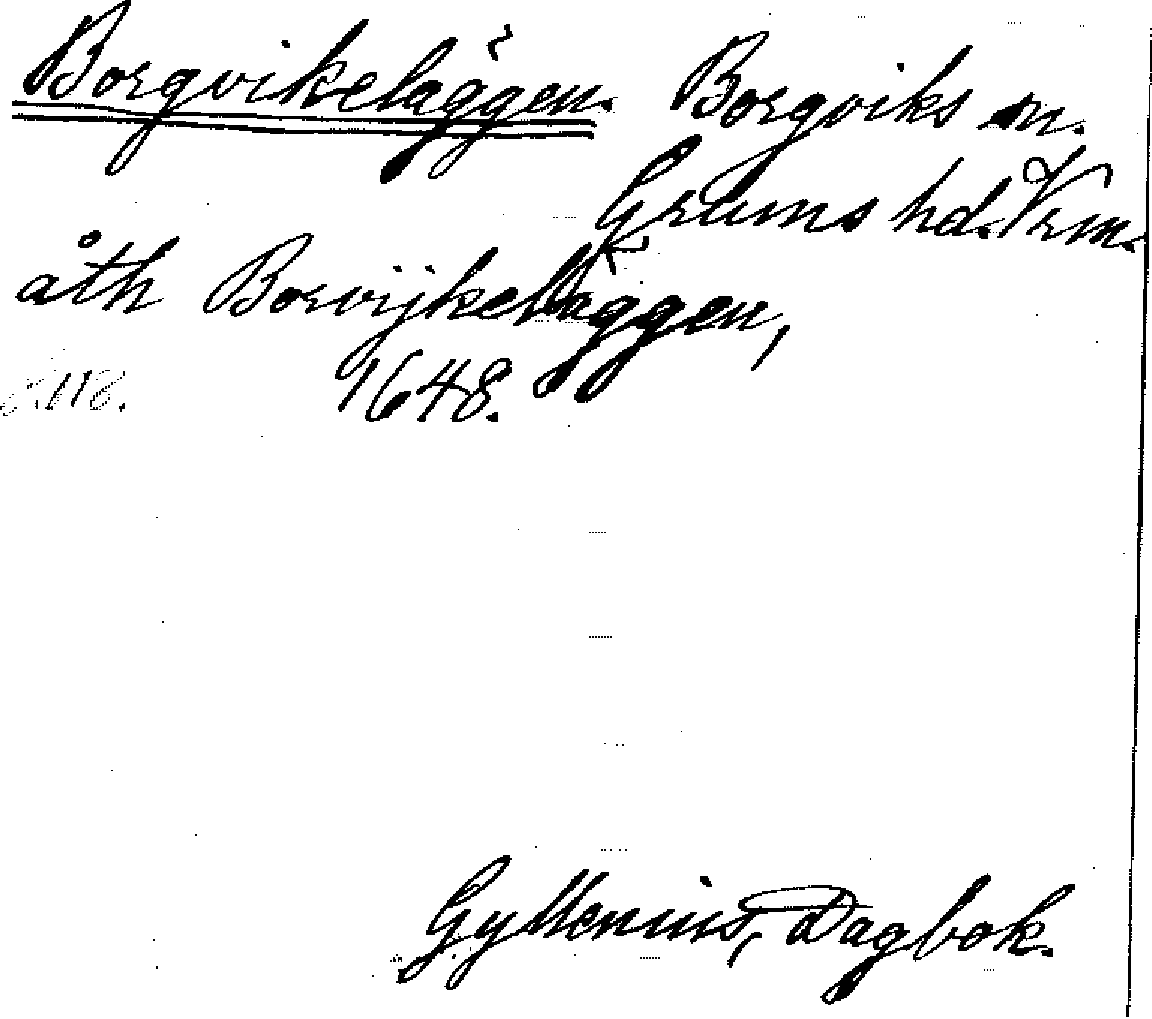 Borgvikelaggen. Borgviks sn.
Grums hd. Vrm.
åth Borvijkelaggen,
S. 118. 1648.
Gyllenius, Dagbok.